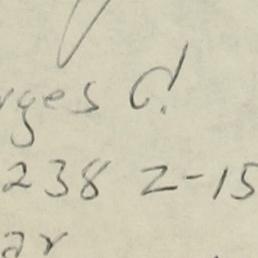 rges d!
238 2-15
ar